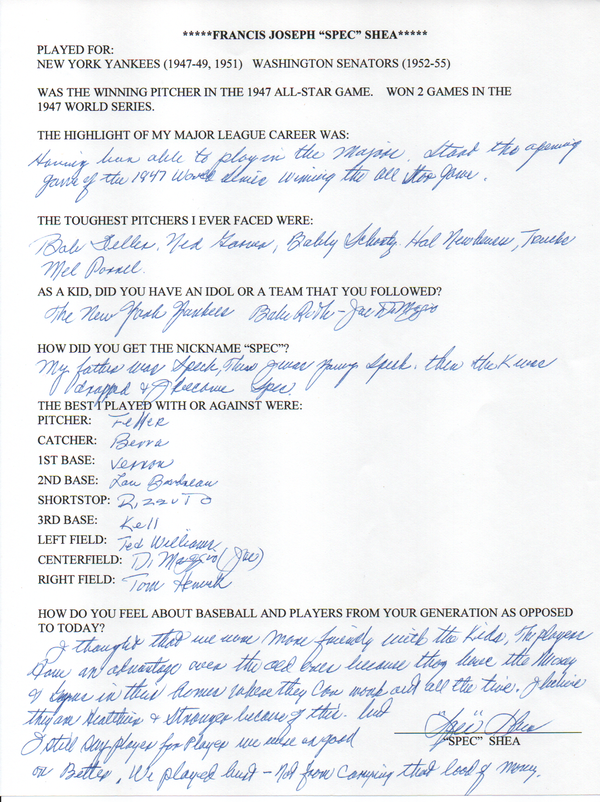 *****FRANCIS JOSEPH “SPEC” SHEA*****
PLAYED FOR:
NEW YORK YANKEES (1947-49, 1951) WASHINGTON SENATORS (1952-55)
WAS THE WINNING PITCHER IN THE 1947 ALL-STAR GAME. WON 2 GAMES IN THE
1947 WORLD SERIES.
THE HIGHLIGHT OF MY MAJOR LEAGUE CAREER WAS:
Having been able to play in the Majors. the opening
game of the 1947 World Series Winning the All Star Game.
THE TOUGHEST PITCHERS I EVER FACED WERE:
Bob Feller, Ned Garver, Bobby Schantz. Hal Newhouser,
Mel Parnel.
AS A KID, DID YOU HAVE AN IDOL OR A TEAM THAT YOU FOLLOWED?
The New York Yankees Babe Ruth - Joe DiMaggio
HOW DID YOU GET THE NICKNAME “SPEC”?
My father was Speck, Then I was Young Speck. then the K was
dropped & I became Spec.
THE BEST I PLAYED WITH OR AGAINST WERE:
PITCHER: Feller
CATCHER: Berra
1ST BASE: Vernon
2ND BASE: Lou Boudreau
SHORTSTOP: Rizzuto
3RD BASE: Kell
LEFT FIELD: Ted Williams
CENTERFIELD: Di Maggio (Joe)
RIGHT FIELD: Tom Henrich
HOW DO YOU FEEL ABOUT BASEBALL AND PLAYERS FROM YOUR GENERATION AS OPPOSED
TO TODAY?
I thought that we were More friendly with the Kids, The players
Have an advantage over the old ones because they have the Money
& in their homes where they Can work out all the time. I believe
they are Healthier & Stronger because of this. but
I still Say player for Player we were as good
or Better, We played hurt - Not from Carrying that load of Money.
"Spec" Shea
“SPEC” SHEA